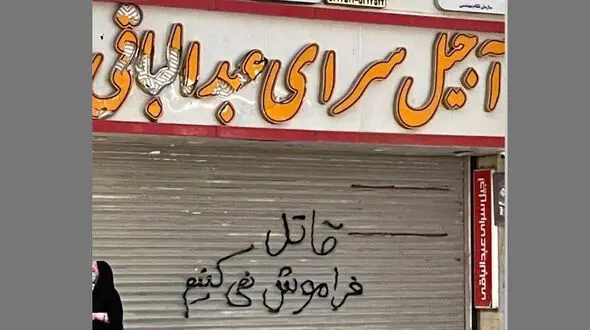 آجیل سرای عبدالباقی
قاتل
فراموش نمی کنیم
آجیل سرای عبدالباقی